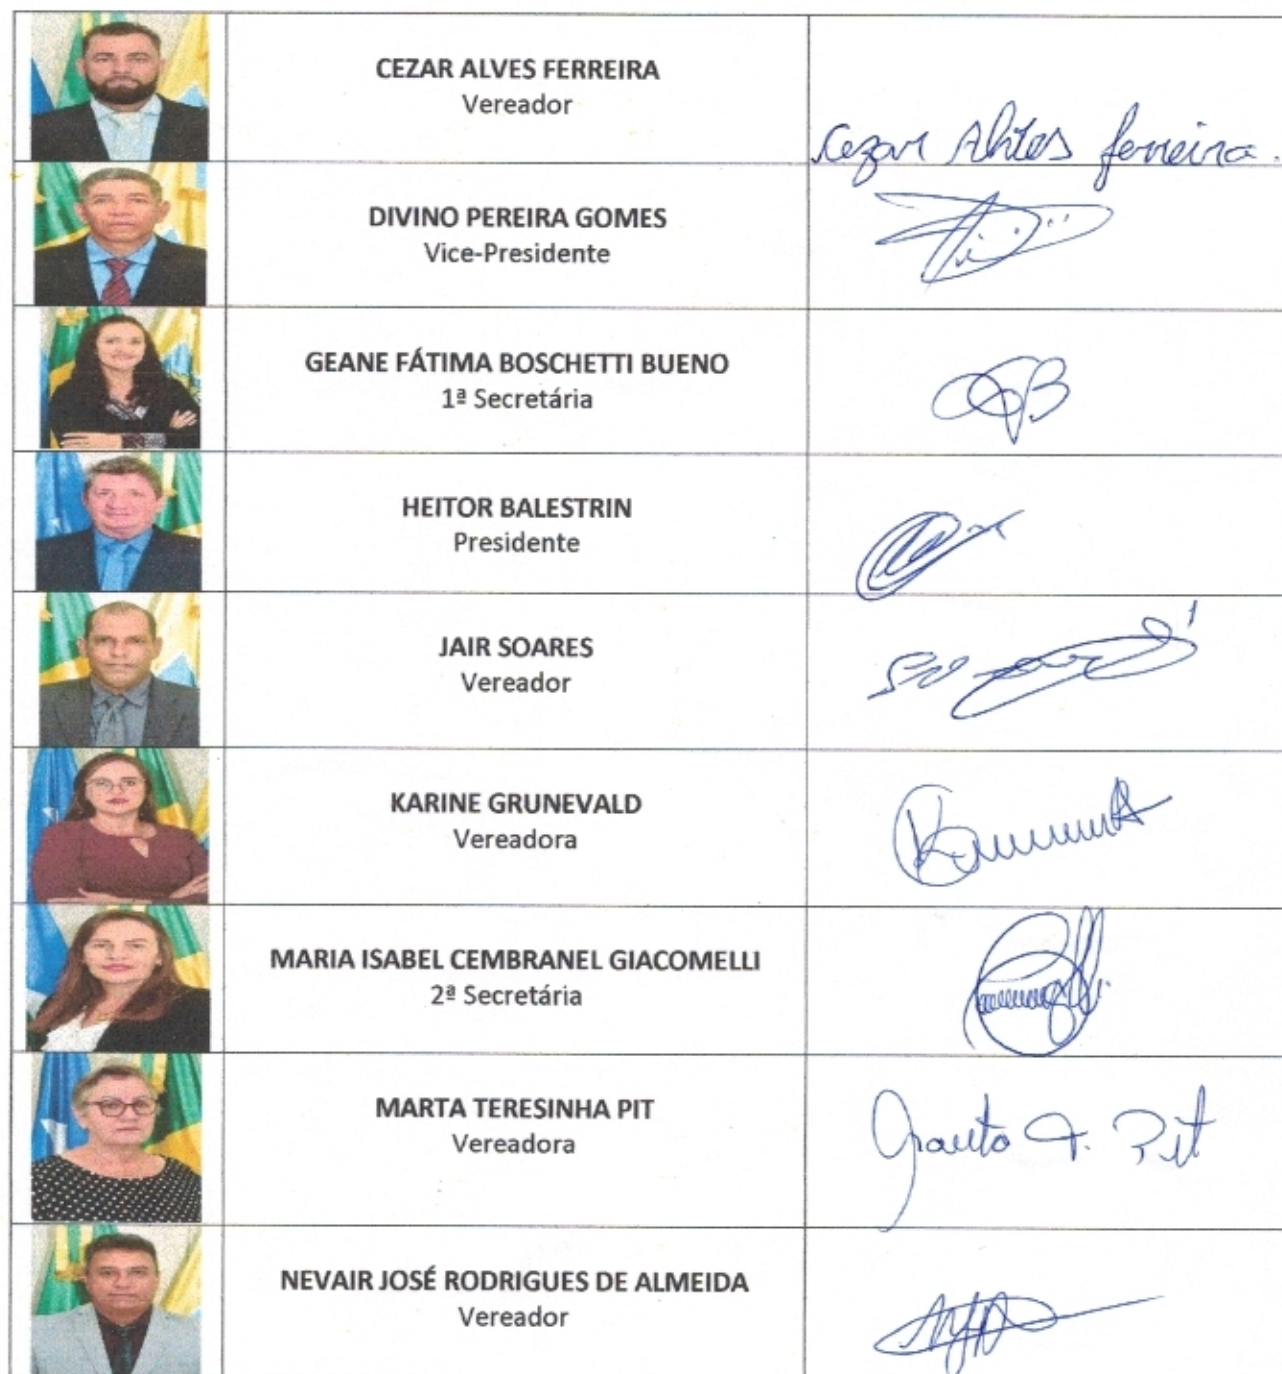 CEZAR ALVES FERREIRA
Vereador
Cezar Alves ferreira.
DIVINO PEREIRA GOMES
Vice-Presidente
GEANE FÁTIMA BOSCHETTI BUENO
1ª Secretária
HEITOR BALESTRIN
Presidente
JAIR SOARES
Vereador
KARINE GRUNEVALD
Vereadora
MARIA ISABEL CEMBRANEL GIACOMELLI
2ª Secretária
MARTA TERESINHA PIT
Vereadora
Marta T. Pit
NEVAIR JOSÉ RODRIGUES DE ALMEIDA
Vereador